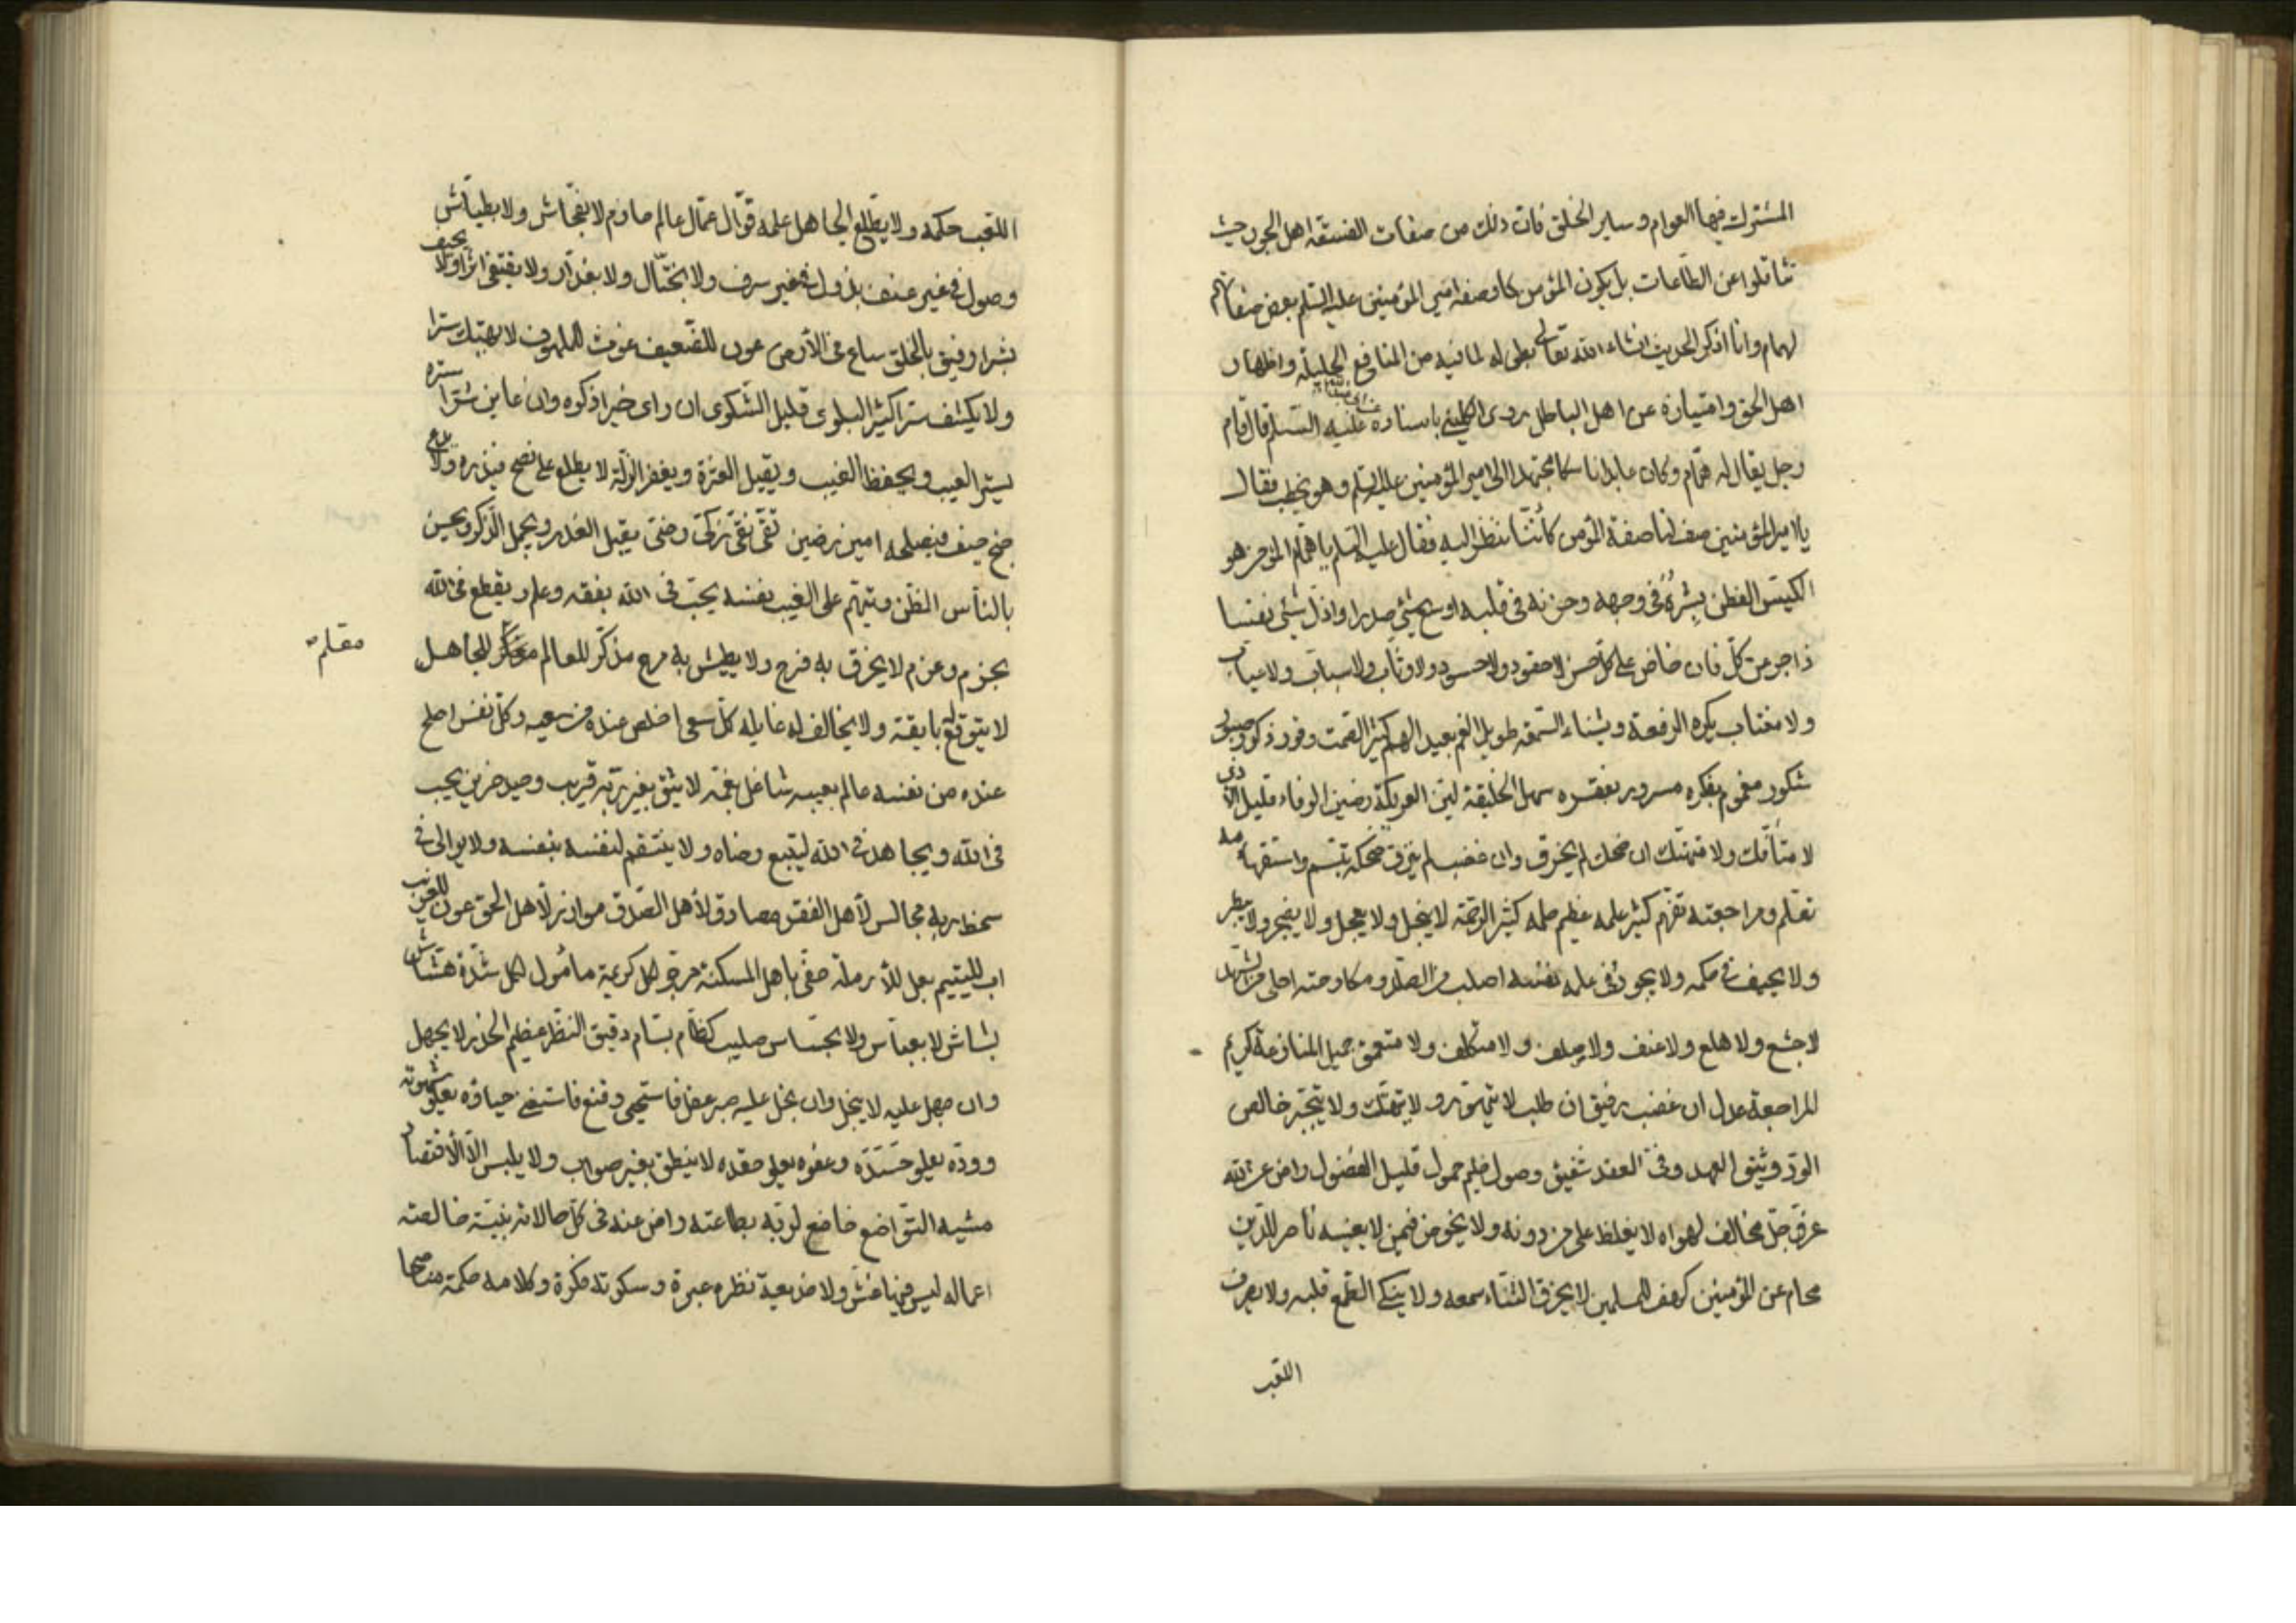 المشترك فيها العوام و ساير الخلق فان ذلك من صفات الفسقة اهل الجور حيث
تثاقلوا عن الطاعات بل يكون المؤمن كما وصفه امير المؤمنين عليه السلم بعض صفاتهم
لهمام وانا اذكر الحديث انشاء الله تعالى بطوله لما فيه من المنافع الجليلة واظهار
اهل الحق وامتيازه عن اهل الباطل روى الكليني باسناده عليه السلم قال قام
رجل يقال له همام وكان عابدا ناسكا مجتهدا الى امير المؤمنين عليه السلم وهو يخطب فقال
يا امير المؤمنين صف لنا صفة المؤمن كاننا ننظر اليه فقال عليه السلم يا همام المؤمن هو
الكيس الفطن بشره فى وجهه وحزنه فى قلبه اوسع شئ صدرا واذل شئ نفسا
زاجر عن كل فان حاض على كل حسن لا حقود ولا حسود ولا وثاب ولا سباب ولا عياب
ولا مغتاب يكره الرفعة ويشناء السمعة طويل الغم بعيد الهم كثير الصمت وقور ذكور صبور
شكور مغموم بفكره مسرور بفقره سهل الخليقة لين العريكة رصين الوفاء قليل الاذى
لا متأفك ولا متهتك ان ضحك لم يخرق وان غضب لم ينزق ضحكه تبسم واستفهامه
تعلم ومراجعته تفهم كثير علمه عظيم حلمه كثير الرحمة لا يبخل ولا يعجل ولا يضجر ولا يبطر
ولا يحيف فى حكمه ولا يجور فى علمه نفسه اصلب من الصلد ومكادحته احلى من الشهد
لا جشع ولا هلع ولا عنف ولا صلف ولا متكلف ولا متعمق جميل المنازعة كريم
المراجعة عدل ان غضب رفيق ان طلب لا يتهور ولا يتهتك ولا يتجبر خالص
الود وثيق العهد وفى العقد شفيق وصول حليم حمول قليل الفضول راض عن الله
عز وجل مخالف لهواه لا يغلظ على من دونه ولا يخوض فيمن لا يعنيه ناصر للدين
محام عن المؤمنين كهف للمسلمين لا يخرق الثناء سمعه ولا ينكى الطمع قلبه ولا يصرف
اللعب
اللعب حكمه ولا يطلع الجاهل علمه قوال عمال عالم حازم لا بفحاش ولا بطياش
وصول فى غير عنف بذول فى غير سرف ولا بختال ولا بغدار ولا يقتفى اثرا ولا يحيف
بشرا رفيق بالخلق ساع فى الأرض عون للضعيف غوث للملهوف لا يهتك سترا
ولا يكشف سترا كثير البلوى قليل الشكوى ان راى خيرا ذكره وان عاين شرا ستره
يستر العيب ويحفظ الغيب ويقيل العثرة ويغفر الزلة لا يطلع على نصح فيذره ولا يدع
جنح حيف فيصلحه امين رصين تقى نقى زكى رضى يقبل العذر ويجمل الذكر ويحسن
بالناس الظن ويتهم على الغيب نفسه يحب فى الله بفقه وعلم ويقطع فى الله
بحزم وعزم لا يخرق به فرح ولا يطيش به مرح مذكر للعالم معلم للجاهل
معلم
لا يتوقع له بايقة ولا يخاف له غايلة كل سعى اخلص عنده من سعيه وكل نفس اصلح
عنده من نفسه عالم بعيبه شاغل بغمه لا يثق بغير ربه قريب وحيد حزين يحب
فى الله ويجاهد فى الله ليتبع رضاه ولا ينتقم لنفسه بنفسه ولا يوالى فى
سخط ربه مجالس لأهل الفقر مصادق لأهل الصدق موازر لأهل الحق عون للغريب
اب لليتيم بعل للأرملة حفى باهل المسكنة مرجو لكل كريهة مأمول لكل شدة هشاش
بشاش لا بعباس ولا بجساس صليب كظام بسام دقيق النظر عظيم الحذر لا يجهل
وان جهل عليه لا يبخل وان بخل عليه صبر عقل فاستحيى وقنع فاستغنى حياؤه يعلو شهوته
ووده يعلو حسده وعفوه يعلو حقده لا ينطق بغير صواب ولا يلبس الا الاقتصاد
مشيه التواضع خاضع لربه بطاعته راض عنه فى كل حالاته نيته خالصة
اعماله ليس فيها غش ولا خديعة نظره عبرة و سكوته فكرة وكلامه حكمة مناصحا